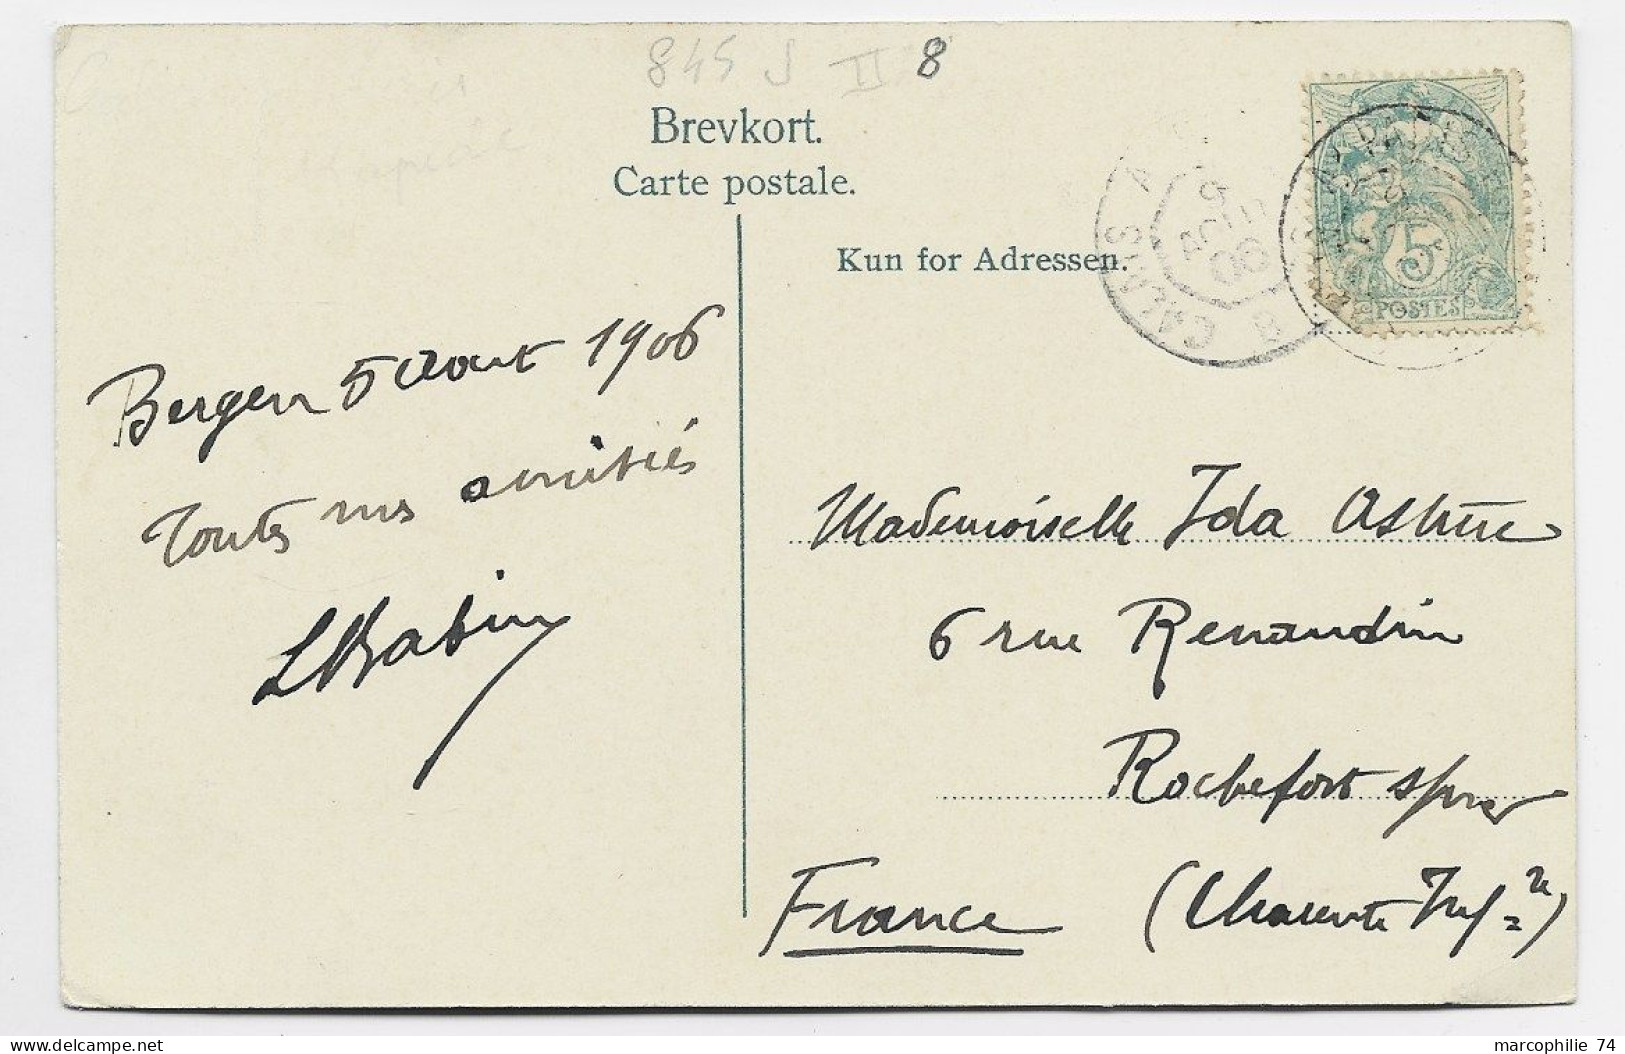 845 J II 8
Brevkort.
Carte postale.
Kun for Adressen.
CALAIS A
9
AOUT
06
PARIS
5
POSTES
Bergen 5 Aout 1906
Toutes mes amitiés
LBabin
Mademoiselle Ida
6 rue Renaudin
Rochefort s/mer
France (Charente Infre)
marcophilie 74